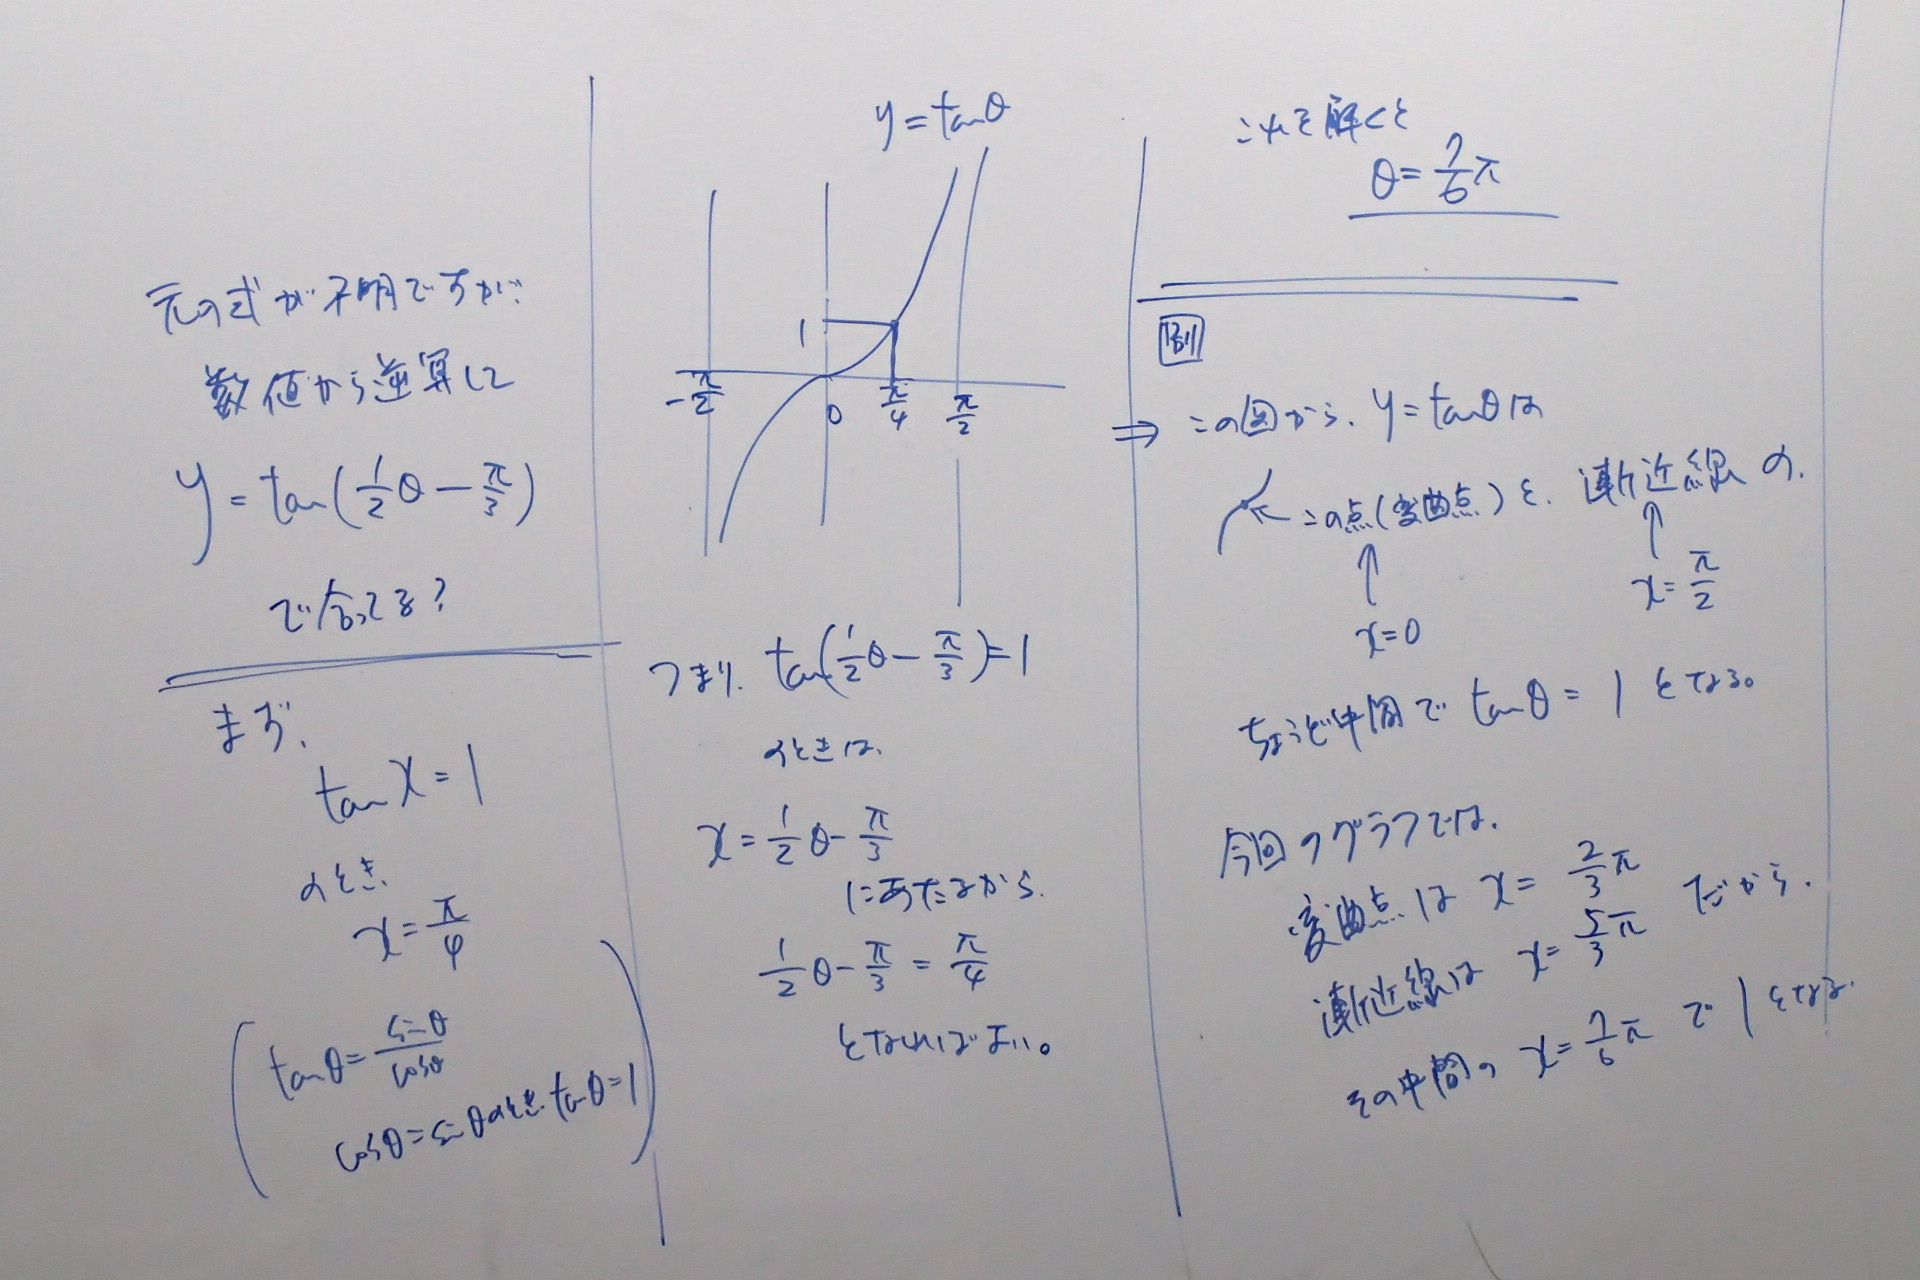 元の式が不明ですが、
数値から逆算して
y = tan(1/2 θ - π/3)
で合ってる?
まず、
tan x = 1
のとき、
x = π/4
(tanθ = sinθ/cosθ
cosθ = sinθ のとき、tanθ = 1)
y = tanθ
1
-π/2 0 π/4 π/2
つまり、tan(1/2 θ - π/3) = 1
のときは、
x = 1/2 θ - π/3
にあたるから、
1/2 θ - π/3 = π/4
となればよい。
これを解くと
θ = 7/6 π
別
⇒ この図から、y = tanθ は
← この点(変曲点)と、漸近線の、
↑ x = 0
↑ x = π/2
ちょうど中間で tanθ = 1 となる。
今回のグラフでは、
変曲点は x = 2/3 π
漸近線は x = 5/3 π だから、
その中間の x = 7/6 π で 1 となる。